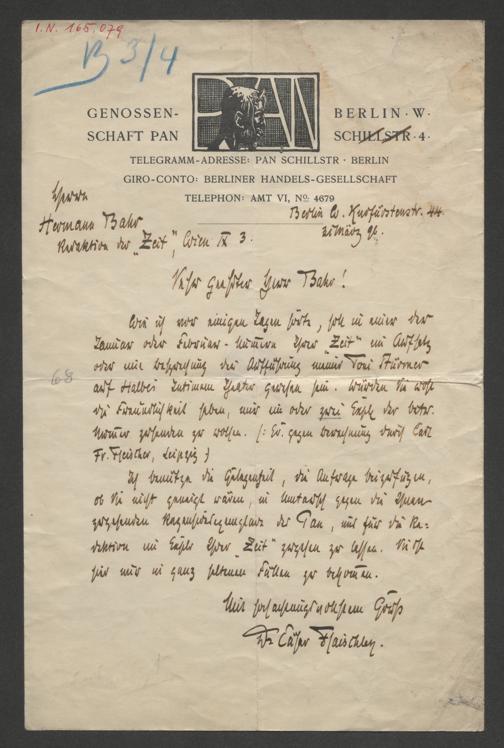 I.N. 165.079
B 3/4
PAN
GENOSSEN-
SCHAFT PAN
BERLIN · W ·
SCHILLSTR · 4 ·
TELEGRAMM-ADRESSE: PAN SCHILLSTR · BERLIN
GIRO-CONTO: BERLINER HANDELS-GESELLSCHAFT
TELEPHON: AMT VI, No. 4679
Berlin W. Kurfürstenstr. 44
März 96.
Herrn
Hermann Bahr
Redaktion der "Zeit", Wien IX 3.
Sehr geehrter Herr Bahr!
Wie ich vor einigen Tagen hörte, soll in einer der
Januar oder Februar-Nummern Ihrer "Zeit" ein Aufsatz
oder eine Besprechung der Aufführung meines Toni Stürmer
auf Halbes Intimem Theater gewesen sein. Würden Sie wohl
68
die Freundlichkeit haben, mir ein oder zwei Expl. der betr.
Nummer zusenden zu wollen. (: Ev. gegen Berechnung durch Carl
Fr. Fleischer, Leipzig :)
Ich benutze die Gelegenheit, die Anfrage beizufügen,
ob Sie nicht geneigt wären, im Umtausch gegen die Ihnen
zugehenden des Pan, uns für die Re-
daktion ein Explr Ihrer "Zeit" zugehen zu lassen. Sie ist
hier nur in ganz seltenen Fällen zu bekommen.
Mit hochachtungsvollstem Gruß
Dr Cäsar Flaischlen.